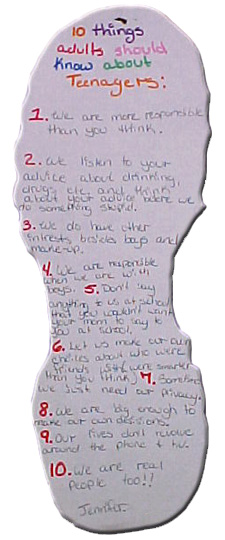 10 things
adults should
Know about
Teenagers:
1. We are more responsible
than you think.
2. We listen to your
advice about drinking,
drugs etc. and think
about your advice before we
do something stupid.
3. We do have other
intrests besides boys and
make-up.
4. We are responsible
when we are with
boys. 5. Don't say
anything to us at school
that you wouldn't want
your mom to say to
you at school.
6. Let us make our own
choices about who were
friends (we're smarter
than you think) 7. Sometimes
we Just need our privacy.
8. We are big enough to
make our own decisions.
9. Our lives don't revolve
around the phone + t.v.
10. We are real
people too!!
Jennifer